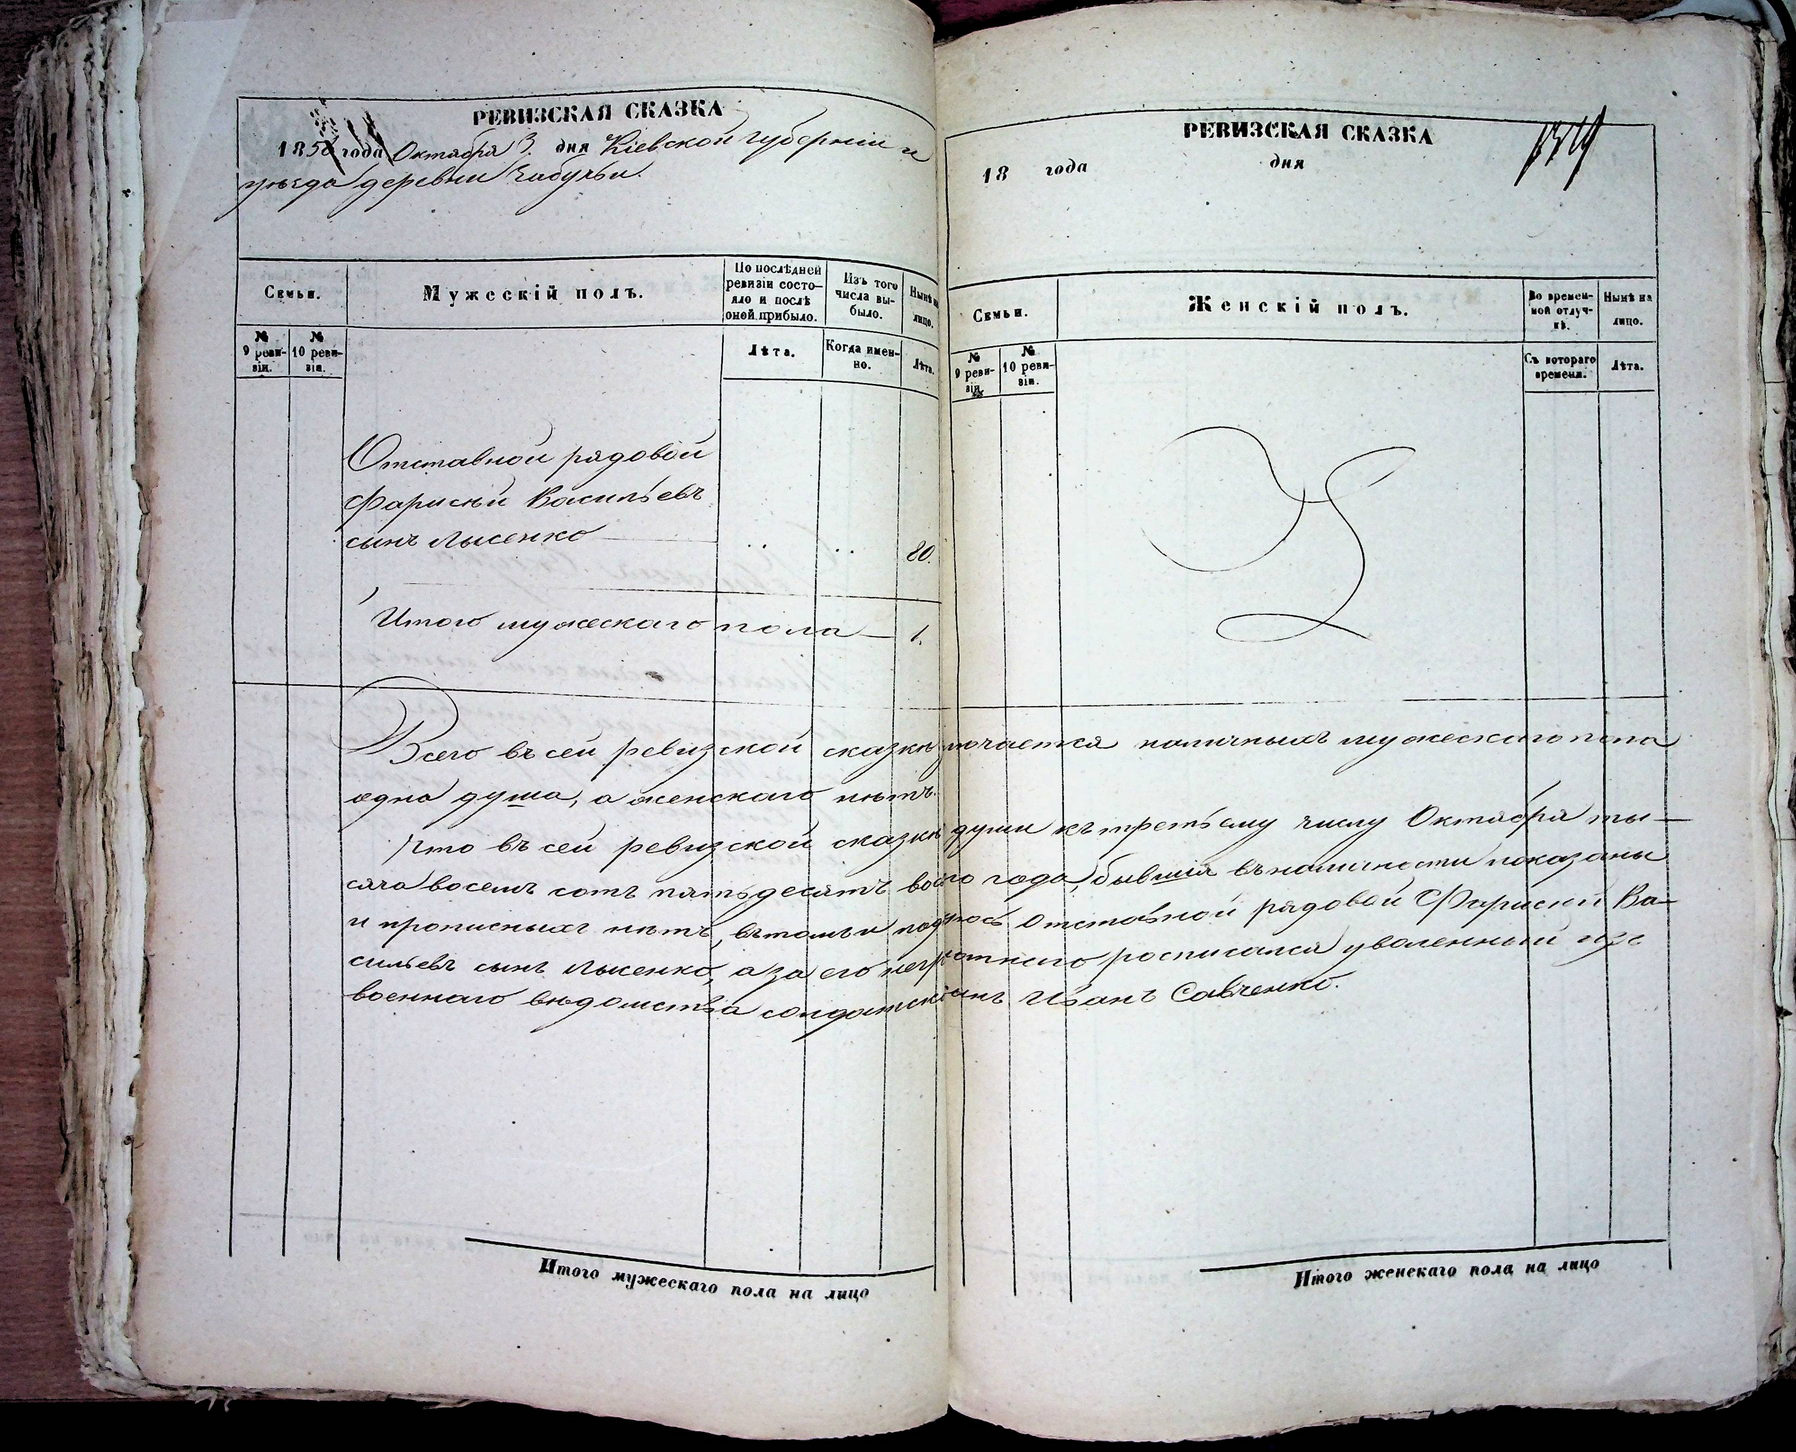 РЕВИЗСКАЯ СКАЗКА
1858 года Октября 3. дня Кіевской губерніи и
уѣзда деревни
Семьи.
Мужескій полъ.
По послѣдней ревизіи состояло и послѣ оной прибыло.
Изъ того числа выбыло.
Нынѣ на лицо.
№ 9 ревизіи.
№ 10 ревизіи.
Лѣта.
Когда именно.
Лѣта.
Отставной рядовой
Фарисѣй Васильевъ
сынъ Лысенко
80.
Итого мужескаго пола — 1.
Всего въ сей ревизской сказкѣ наличныхъ мужескаго пола
одна душа, а женскаго нѣтъ.
Что въ сей ревизской сказкѣ души къ третьему числу Октября ты-
сяча восемь сотъ пятьдесятъ года, бывшія въ наличности показаны
и прописныхъ нѣтъ, въ томъ и Отставной рядовой Фарисѣй Ва-
сильевъ сынъ Лысенко, а за его росписался уволенный изъ
военнаго вѣдомства Иванъ Савченко.
Итого мужескаго пола на лицо
РЕВИЗСКАЯ СКАЗКА
18 года дня
Семьи.
Женскій полъ.
Во временной отлучкѣ.
Нынѣ на лицо.
№ 9 ревизіи.
№ 10 ревизіи.
Съ котораго времени.
Лѣта.
Итого женскаго пола на лицо